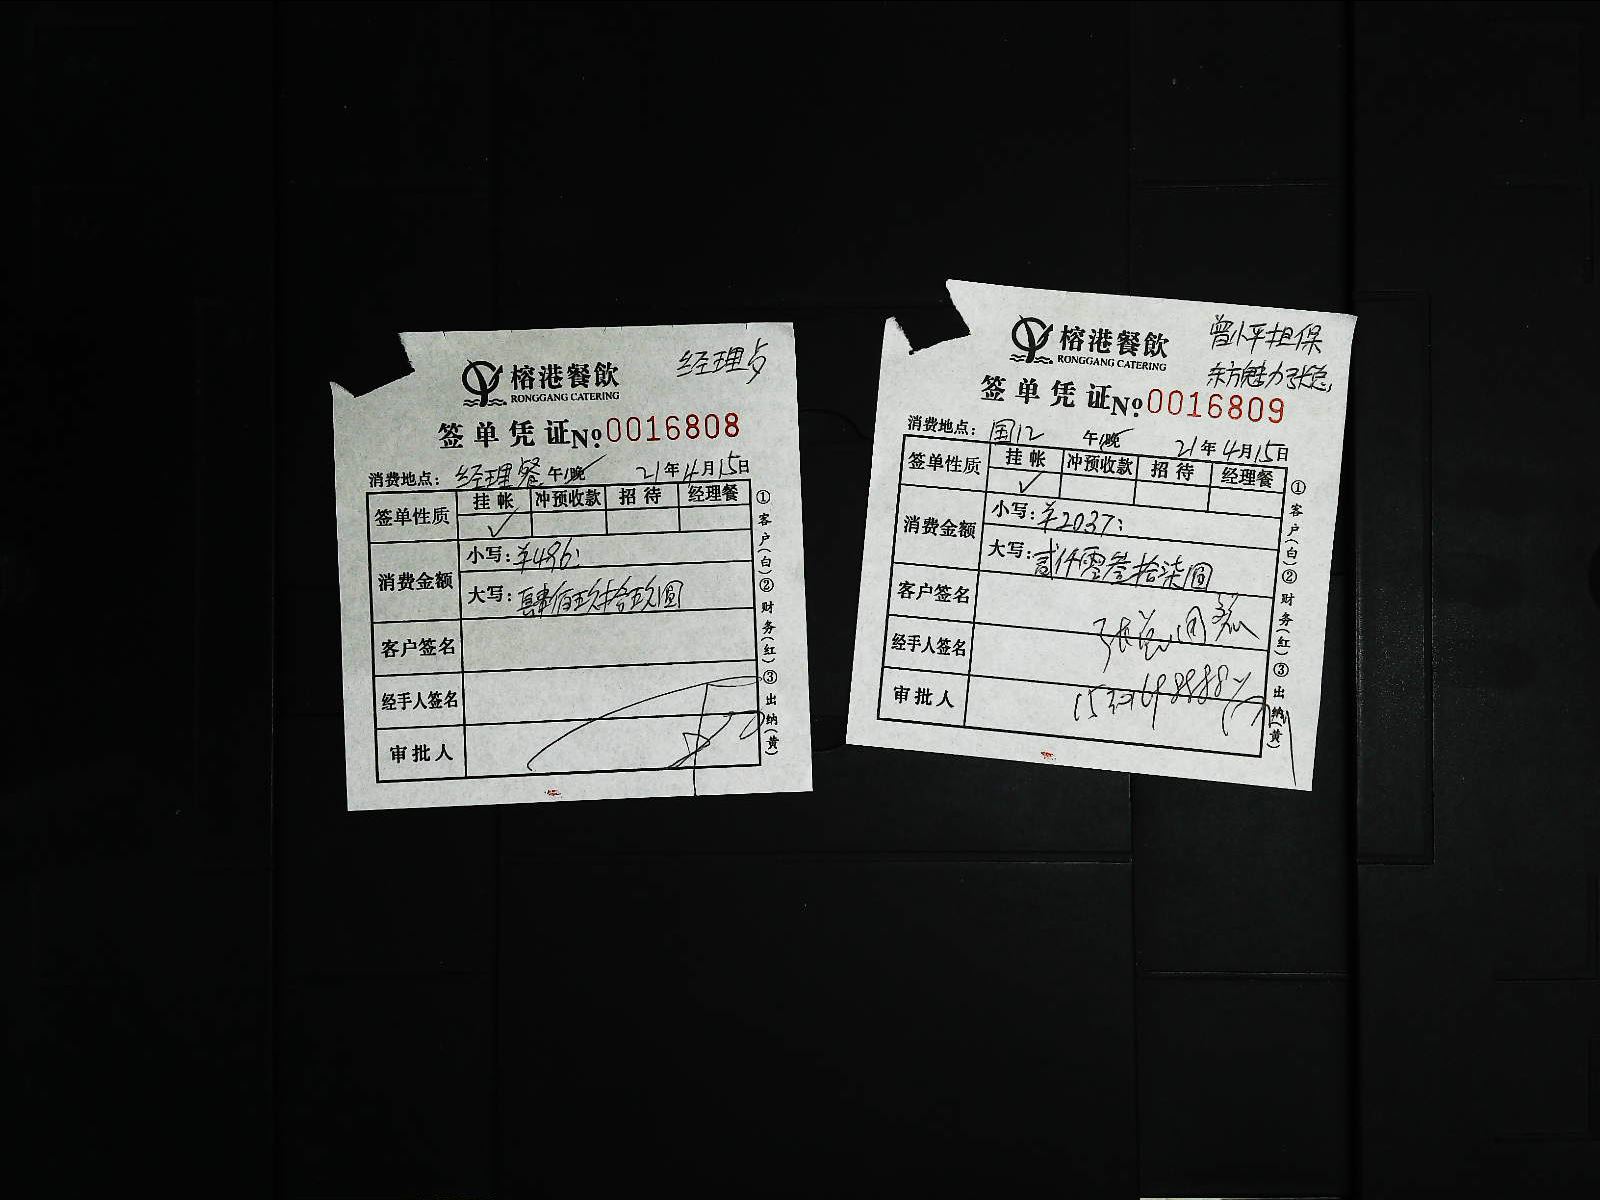 榕港餐飲
RONGGANG CATERING
经理
签单凭证 No. 0016808
消费地点: 经理餐 午/晚 21年4月15日
签单性质 挂帐 冲预收款 招待 经理餐
✓
消费金额 小写: ¥496:
大写: 肆佰玖拾玖圆
客户签名
经手人签名
审批人
①客户(白)②财务(红)③出纳(黄)
榕港餐飲
RONGGANG CATERING
曾小平担保
东方魅力张总
签单凭证 No. 0016809
消费地点: 国12 午/晚 21年4月15日
签单性质 挂帐 冲预收款 招待 经理餐
✓
消费金额 小写: ¥2037:
大写: 贰仟零叁拾柒圆
客户签名
经手人签名
审批人
①客户(白)②财务(红)③出纳(黄)